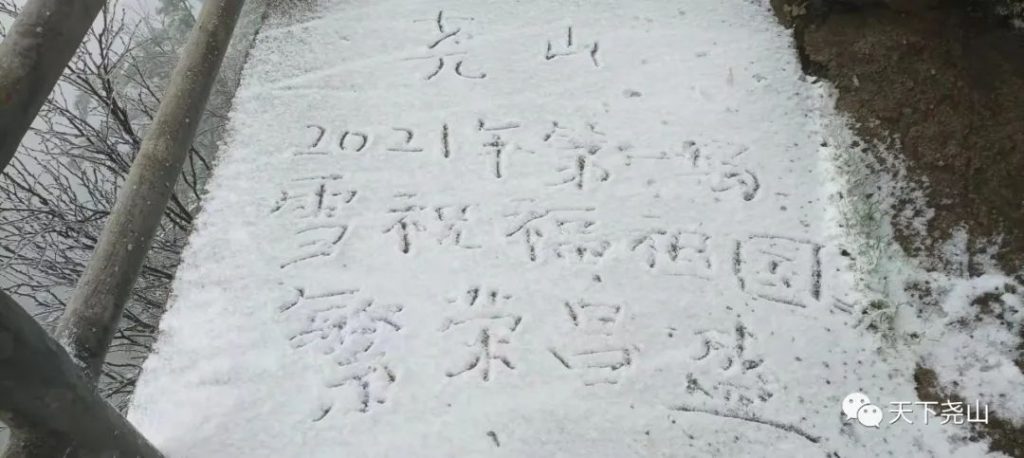 尧山
2021年第一场
雪祝福祖国
繁荣昌盛
天下尧山